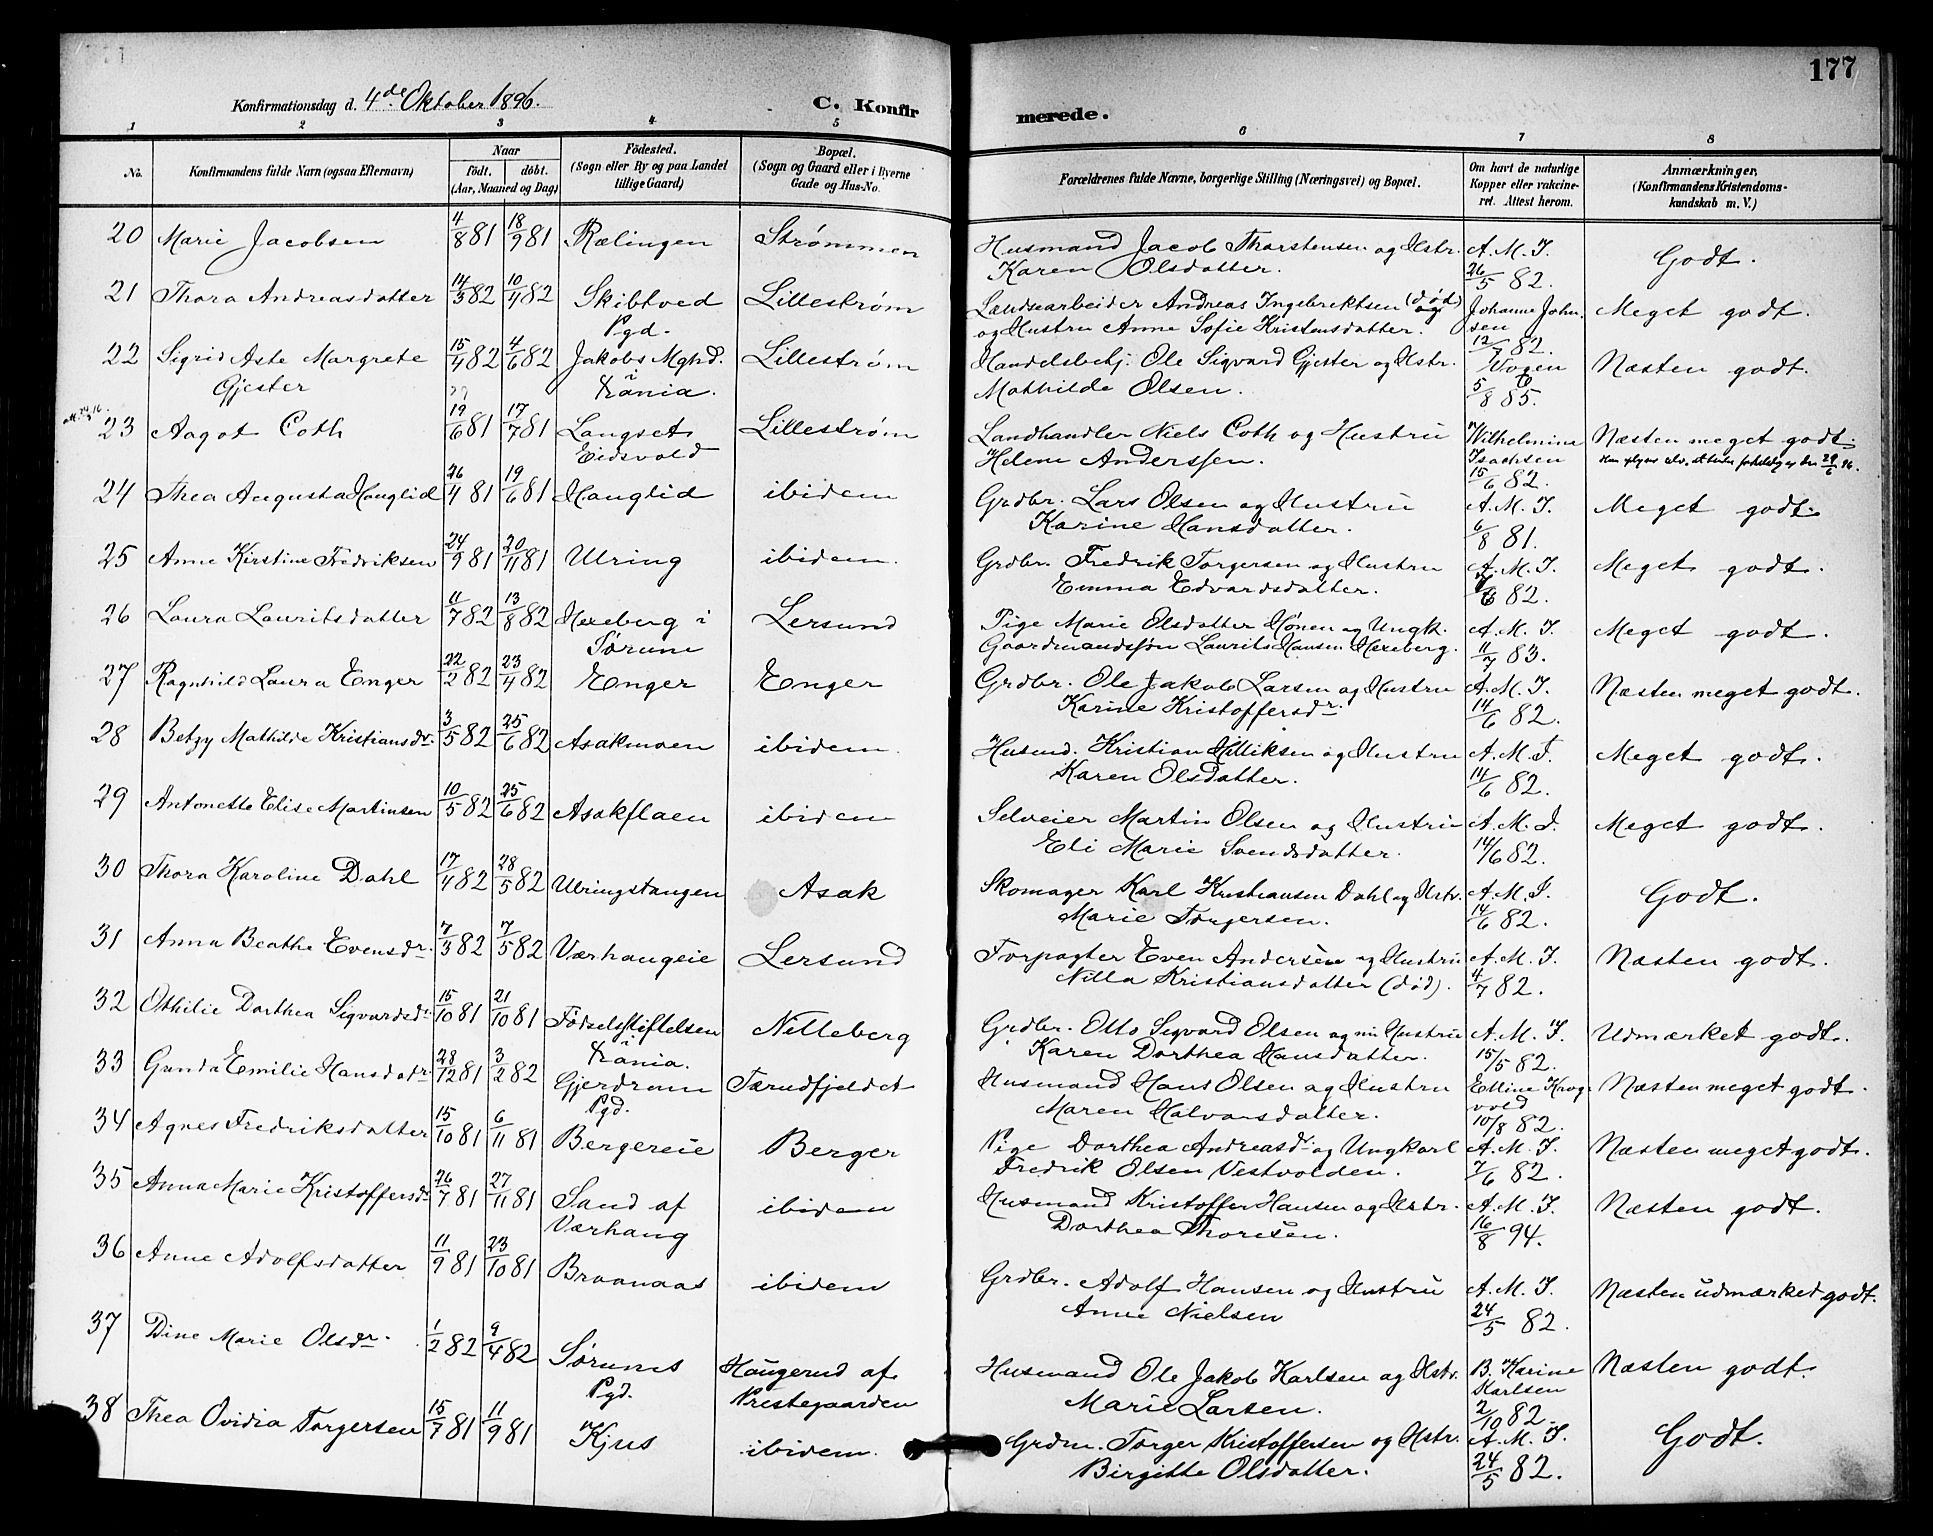 177
Konfirmationsdag d. 4de Oktober 1896.
C. Konfirmerede.
1 2 3 4 5 6 7 8
No.
Konfirmandens fulde Navn (ogsaa Efternavn)
Naar
födt. döbt.
(Aar, Maaned og Dag)
Födested.
(Sogn eller By og paa Landet
tillige Gaard)
Bopæl.
(Sogn og Gaard eller i Byerne
Gade og Hus-No.
Forældrenes fulde Navne, borgerlige Stilling (Næringsvei) og Bopæl.
Om havt de naturlige
Kopper eller vakcine-
ret. Attest herom.
Anmærkninger,
(Konfirmandens Kristendoms-
kundskab m. V.)
20 Marie Jacobsen 4/8 81 18/9 81 Rælingen Strømmen Husmand Jacob Thorstensen og Hstr. A. M. I. Godt.
Karen Olsdatter. 26/5 82.
21 Thora Andreasdatter 14/3 82 10/4 82 Skibtved Lillestrøm Landsearbeider Andreas Ingebrektsen (død) Johanne John- Meget godt.
Pgd. og Hustru Anne Sofie Kristensdatter. sen 12/7 82.
22 Sigrid Aste Margrete 15/4 82 4/6 82 Jakobs Mghd. Lillestrøm Handelsbetj. Ole Sigvard Gjester og Hstr. Vogen Næsten godt.
Gjester i Kränia. Mathilde Olsen. 5/8 85.
23 Aagot Coth 19/6 81 17/7 81 Langset Lillestrøm Landhandler Niels Coth og Hustru Wilhelmine Næsten meget godt.
Eidsvold Helene Anderssen. Isachsen 15/6 82.
24 Thea Augusta Hauglid 26/4 81 19/6 81 Hauglid ibidem Grdbr. Lars Olsen og Hustru A. M. I. Meget godt.
Karine Hansdatter. 6/8 81.
25 Anne Kirstine Fredriksen 24/9 81 20/11 81 Ulring ibidem. Grdbr. Fredrik Torgersen og Hustru A. M. I. Meget godt.
Emma Edvardsdatter. 82.
26 Laura Lauritsdatter 11/7 82 13/8 82 Hexeberg i Lersund Pige Marie Olsdatter Mønen og Ungk. A. M. I. Meget godt.
Sørum Gaardmandssøn Laurits Hansen Hexeberg. 11/7 83.
27 Ragnhild Laura Enger 22/2 82 23/4 82 Enger Enger Grdbr. Ole Jakob Larsen og Hustru A. M. I. Næsten meget godt.
Karine Kristoffersdr. 14/6 82.
28 Betzy Mathilde Kristiansdr. 3/5 82 25/6 82 Asakmoen ibidem. Husmd. Kristian Milliksen og Hustru A. M. I. Meget godt.
Karen Olsdatter. 14/6 82.
29 Antonette Elise Martinsen 10/5 82 25/6 82 Asakflaen ibidem Selveier Martin Olsen og Hustru A. M. I. Meget godt.
Eli Marie Svendsdatter. 14/6 82.
30 Thora Karoline Dahl 17/4 82 28/5 82 Ulringstangen Asak Skomager Karl Kristiansen Dahl og Hstr. A. M. I. Godt.
Marie Torgersen. 14/6 82.
31 Anna Beathe Evensdr. 7/3 82 7/5 82 Værhaugeie Lersund Forpagter Even Andersen og Hustru A. M. I. Næsten godt.
Nilla Kristiansdatter (død). 4/7 82.
32 Othilie Dorthea Sigvardsdr. 15/10 81 21/10 81 Fødselsstiftelsen Nitteberg Grdbr. Otto Sigvard Olsen og nu Hustru A. M. I. Udmærket godt.
Kränia. Karen Dorthea Hansdatter. 15/5 82.
33 Gunda Emilie Hansdatr. 28/12 81 3/2 82 Gjerdrum Tærudfjeldet Husmand Hans Olsen og Hustru Elline Haug- Næsten meget godt.
Pgd. Maren Halvorsdatter. vold 10/8 82.
34 Agnes Fredriksdatter 15/10 81 6/11 81 Bergereie Berger Pige Dorthea Andreasdr. og Ungkarl A. M. I. Næsten meget godt.
Fredrik Olsen Vestvolden. 7/6 82.
35 Anna Marie Kristoffersdr. 26/7 81 27/11 81 Sand af ibidem Husmand Kristoffer Hansen og Hstr. A. M. I. Næsten godt.
Værhaug Dorthea Thoresen. 16/8 94.
36 Anne Adolfsdatter 11/9 81 23/10 81 Braanaas ibidem Grdbr. Adolf Hansen og Hustru A. M. I. Næsten udmærket godt.
Anne Nielsen 24/5 82.
37 Dine Marie Olsdr. 1/2 82 9/4 82 Sørums Haugerud af Husmand Ole Jakob Karlsen og Hstr. B. Karine Næsten godt.
Pgd. Prestegaarden Marie Larsen. Karlsen 2/10 82.
38 Thea Ovidia Torgersen 15/7 81 11/9 81 Kjus ibidem. Grdm. Torger Kristoffersen og Hstr. A. M. I. Godt.
Birgitte Olsdatter. 24/5 82.